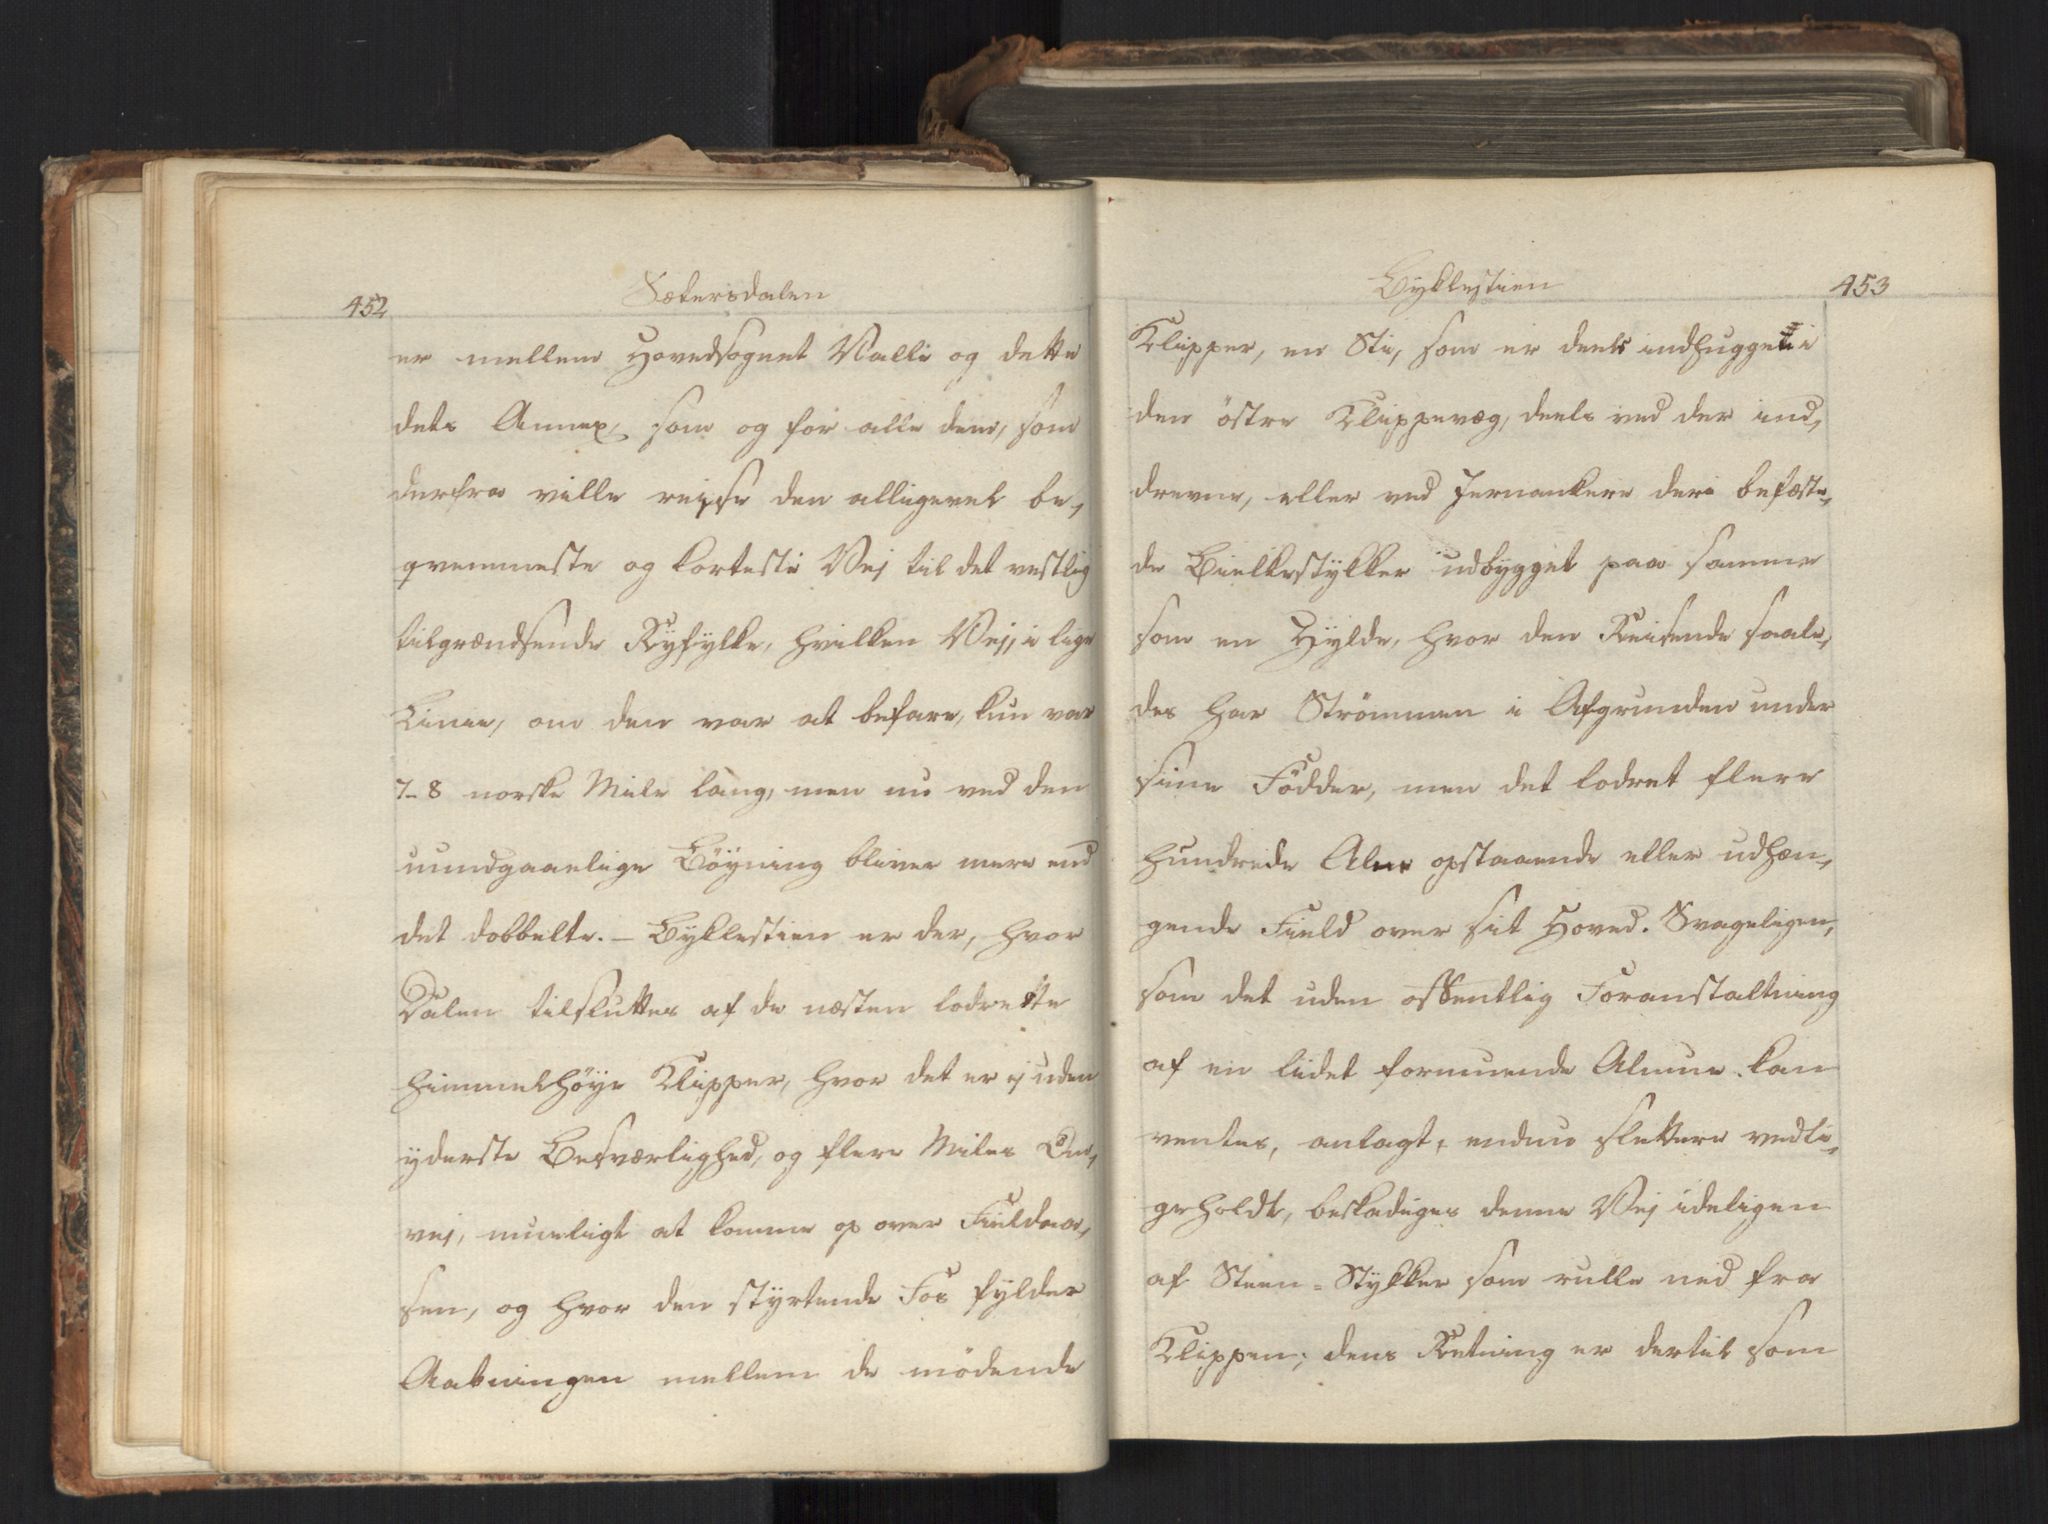 452
Sætersdalen
er mellem Hovedsognet Valle og dette
dets Annex, som og for alle dem, som
derfra ville reisse den alligevel be-
qvemmeste og korteste Vej til det vestlig
tilgrændsende Ryfylke, hvilken Vej, i lige
Linie, om den var at befare, kun var
7-8 norske Mile lang, men nu ved den
uundgaaelige Böyning bliver mere end
det dobbelte. – Byklestien er der, hvor
Dalen tilsluttes af de næsten lodrette
himmelhöye Klipper, hvor det er ej uden
yderste Besværlighed, og flere Miles Om-
vej, mueligt at komme op over Fieldaa-
sen, og hvor den styrtende Fos fylder
Aabningen mellem de mödende
Byklestien
453
Klipper, en Sti, som er deels indhugget i
den östre Klippevæg, deels ved der ind-
drevne, eller ved Jernankere deri befæste-
de Bielkestykker udbygget paa samme
som en Hylde, hvor den Reisende saale-
des har Strömmen i Afgrunden under
sine Födder, men det lodret flere
hundrede Alne opstaaende eller udhæn-
gende Field over sit Hoved. Svageligen,
som det uden offentlig Foranstaltning
af en lidet formuende Almue kan
ventes, anlagt, endnu slettere vedli-
geholdt, beskadiges denne Vej ideligen
af Steen-Stykker som rulle ned fra
Klippen; dens Retning er dertil som